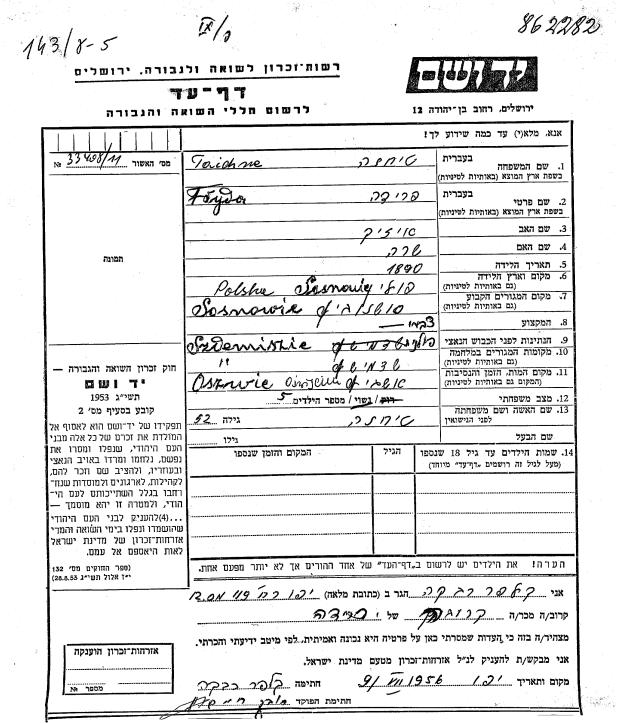 143/8-5
862282
רשות־זכרון לשואה ולגבורה, ירושלים
דף־עד
לרשום חללי השואה והגבורה
יד ושם
ירושלים, רחוב בן־יהודה 12
אנא, מלא(י) עד כמה שידוע לך!
מס׳ האשור №
תמונה
1. שם המשפחה
בעברית
בשפת ארץ המוצא (באותיות לטיניות)
Taichne
2. שם פרטי
בעברית פרידה
בשפת ארץ המוצא (באותיות לטיניות)
Frÿda
3. שם האב אייזיק
4. שם האם שרה
5. תאריך הלידה 1890
6. מקום וארץ הלידה
(גם באותיות לטיניות)
Polska Sosnowie
7. מקום המגורים הקבוע
(גם באותיות לטיניות)
Sosnowie
8. המקצוע
9. הנתינות לפני הכבוש הנאצי
10. מקומות המגורים במלחמה
(גם באותיות לטיניות)
11. מקום המות, הזמן והנסיבות
(המקום גם באותיות לטיניות)
12. מצב משפחתי
רווק/ נשוי/ מספר הילדים 5
13. שם האשה ושם משפחתה
לפני הנישואין
גילה 52
שם הבעל
גילו
14. שמות הילדים עד גיל 18 שנספו
(מעל לגיל זה רושמים ״דף־עד״ מיוחד)
הגיל
המקום והזמן שנספו
חוק זכרון השואה והגבורה —
יד ושם
תשי״ג 1953
קובע בסעיף מס׳ 2
תפקידו של יד־ושם הוא לאסוף אל
המולדת את זכרם של כל אלה מבני
העם היהודי, שנפלו ומסרו את
נפשם, נלחמו ומרדו באויב הנאצי
ובעוזריו, ולהציב שם וזכר להם,
לקהילות, לארגונים ולמוסדות שנח־
רבו בגלל השתייכותם לעם היה־
ודי, ולמטרה זו יהא מוסמך —
...(4) להעניק לבני העם היהודי
שהושמדו ונפלו בימי השואה והמרי
אזרחות־זכרון של מדינת ישראל
לאות היאספם אל עמם.
(ספר החוקים מס׳ 132
י״ז אלול תשי״ג 28.8.53)
הערה! את הילדים יש לרשום ב״דף־העד״ של אחד ההורים אך לא יותר מפעם אחת.
אני קלפר רבקה הגר ב (כתובת מלאה) יפו
קרוב/ה מכר/ה של
מצהיר/ה בזה כי העדות שמסרתי כאן על פרטיה היא נכונה ואמיתית, לפי מיטב ידיעתי והכרתי.
אני מבקש/ת להעניק לנ״ל אזרחות־זכרון מטעם מדינת ישראל.
מקום ותאריך יפו 9/VII 1956 חתימה קלפר רבקה
חתימת הפוקד
אזרחות־זכרון הוענקה
מספר №